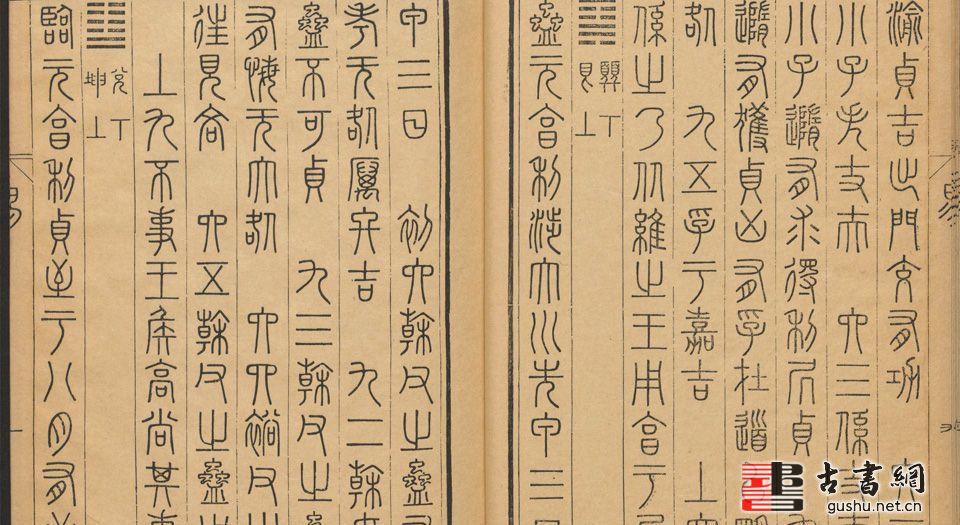 渝貞吉出門交有功 六
小子失丈夫 六三係丈夫
小子隨有求得利居貞
隨有獲貞凶有孚在道
咎 九五孚于嘉吉 上六
係之乃從維之王用亨于
䷑ 巽下艮上
蠱元亨利涉大川先甲三
甲三日 初六幹父之蠱有
考无咎厲終吉 九二幹母
蠱不可貞 九三幹父之
有悔无大咎 六四裕父之
往見吝 六五幹父之蠱
上九不事王侯高尚其事
䷒ 兌下坤上
臨元亨利貞至于八月有
古書網
gushu.net.cn